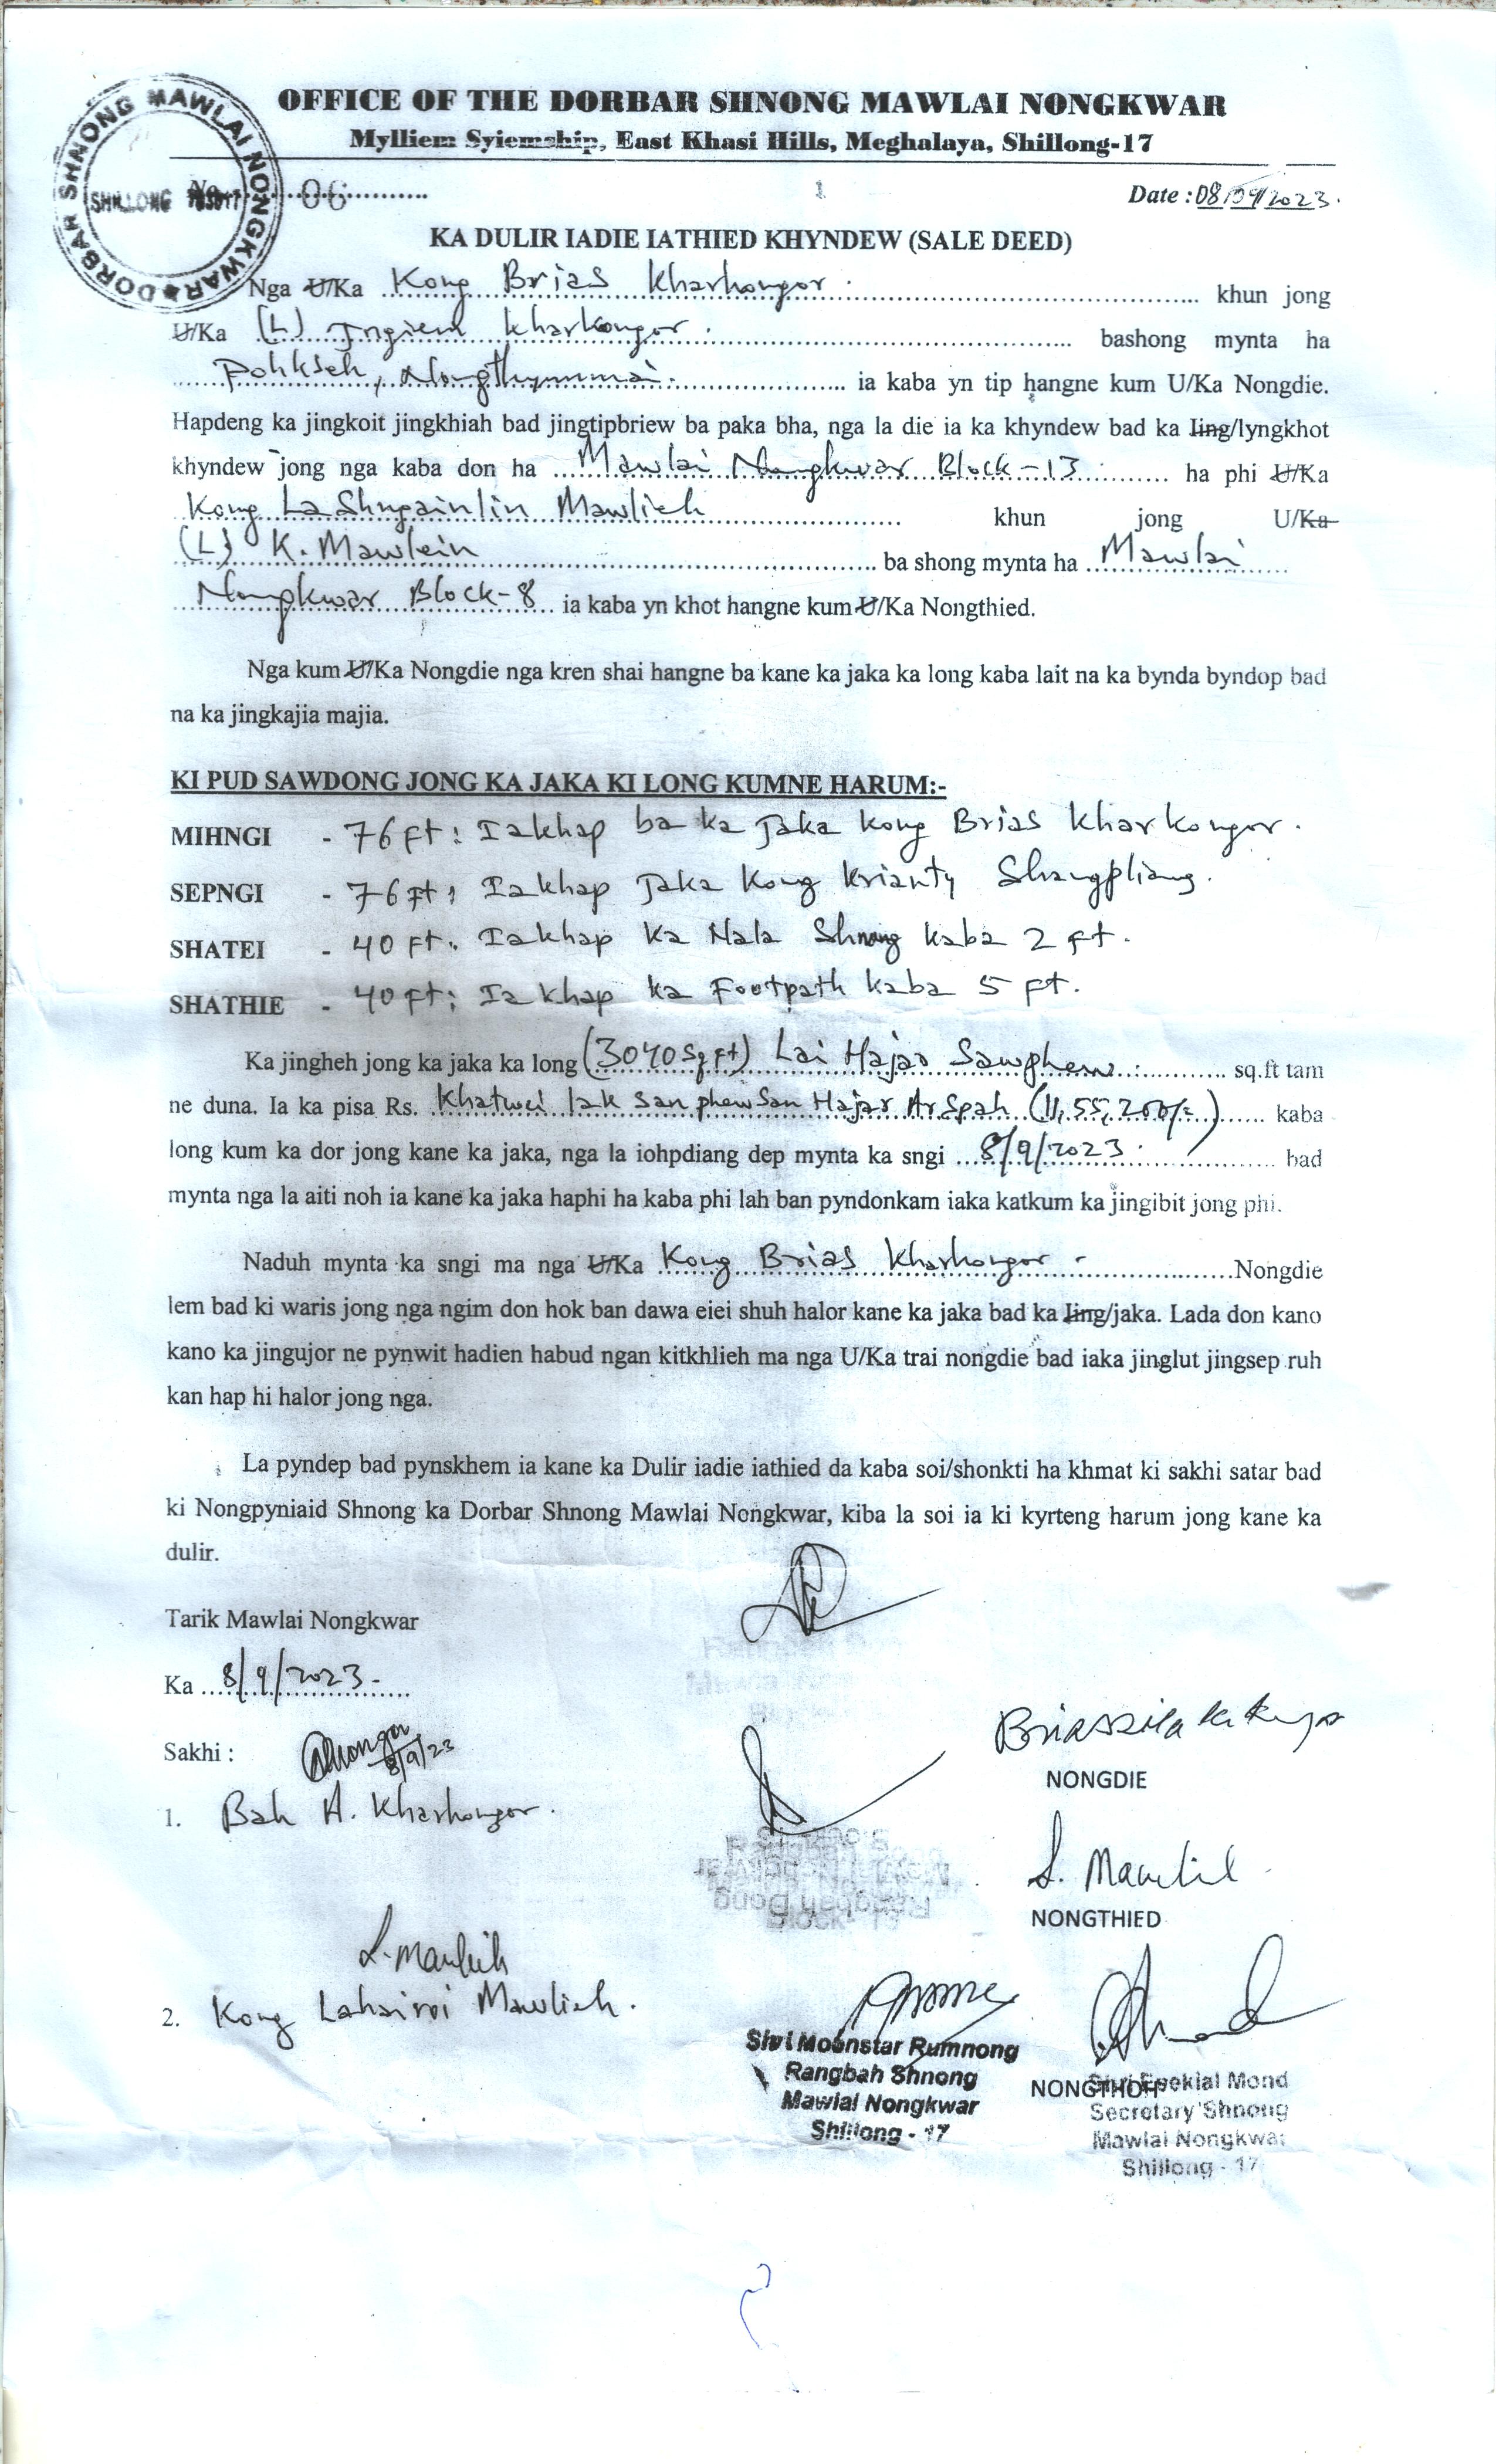 DORBAR SHNONG MAWLAI NONGKWAR
SHILLONG
OFFICE OF THE DORBAR SHNONG MAWLAI NONGKWAR
Mylliem Syiemship, East Khasi Hills, Meghalaya, Shillong-17
No. 06
Date : 08/09/2023.
KA DULIR IADIE IATHIED KHYNDEW (SALE DEED)
Nga U/Ka Kong Brias Kharkongor. khun jong
U/Ka (L) Ingiem Kharkongor. bashong mynta ha
Pohkseh, Nongthymmai. ia kaba yn tip hangne kum U/Ka Nongdie.
Hapdeng ka jingkoit jingkhiah bad jingtipbriew ba paka bha, nga la die ia ka khyndew bad ka Iing/lyngkhot
khyndew jong nga kaba don ha Mawlai Nongkwar Block-13 ha phi U/Ka
Kong LaShngainlin Mawlieh khun jong U/Ka
(L) K. Mawlein ba shong mynta ha Mawlai
Nongkwar Block-8 ia kaba yn khot hangne kum U/Ka Nongthied.
Nga kum U/Ka Nongdie nga kren shai hangne ba kane ka jaka ka long kaba lait na ka bynda byndop bad
na ka jingkajia majia.
KI PUD SAWDONG JONG KA JAKA KI LONG KUMNE HARUM:-
MIHNGI - 76 ft: Iakhap ba ka Jaka Kong Brias Kharkongor.
SEPNGI - 76 ft: Iakhap Jaka Kong Krianty Shangpliang.
SHATEI - 40 ft: Iakhap Ka Nala Shnong kaba 2 ft.
SHATHIE - 40 ft: Iakhap ka Footpath kaba 5 ft.
Ka jingheh jong ka jaka ka long (3040 Sq ft) Lai Hajar Sawphew sq.ft tam
ne duna. Ia ka pisa Rs. Khatwei lak san phew San Hajar Ar Spah (11,55,200/=) kaba
long kum ka dor jong kane ka jaka, nga la iohpdiang dep mynta ka sngi 8/9/2023 bad
mynta nga la aiti noh ia kane ka jaka haphi ha kaba phi lah ban pyndonkam iaka katkum ka jingibit jong phi.
Naduh mynta ka sngi ma nga U/Ka Kong Brias Kharkongor Nongdie
lem bad ki waris jong nga ngim don hok ban dawa eiei shuh halor kane ka jaka bad ka Iing/jaka. Lada don kano
kano ka jingujor ne pynwit hadien habud ngan kitkhlieh ma nga U/Ka trai nongdie bad iaka jinglut jingsep ruh
kan hap hi halor jong nga.
La pyndep bad pynskhem ia kane ka Dulir iadie iathied da kaba soi/shonkti ha khmat ki sakhi satar bad
ki Nongpyniaid Shnong ka Dorbar Shnong Mawlai Nongkwar, kiba la soi ia ki kyrteng harum jong kane ka
dulir.
Tarik Mawlai Nongkwar
Ka 8/9/2023.
Sakhi :
8/9/23
1. Bah H. Kharkongor.
NONGDIE
NONGTHIED
2. Kong Lahairoi Mawlieh.
Shri Moonstar Rumnong
Rangbah Shnong
Mawlai Nongkwar
Shillong - 17
NONGTHOH
Mond
Secretary Shnong
Mawlai Nongkwar
Shillong - 17